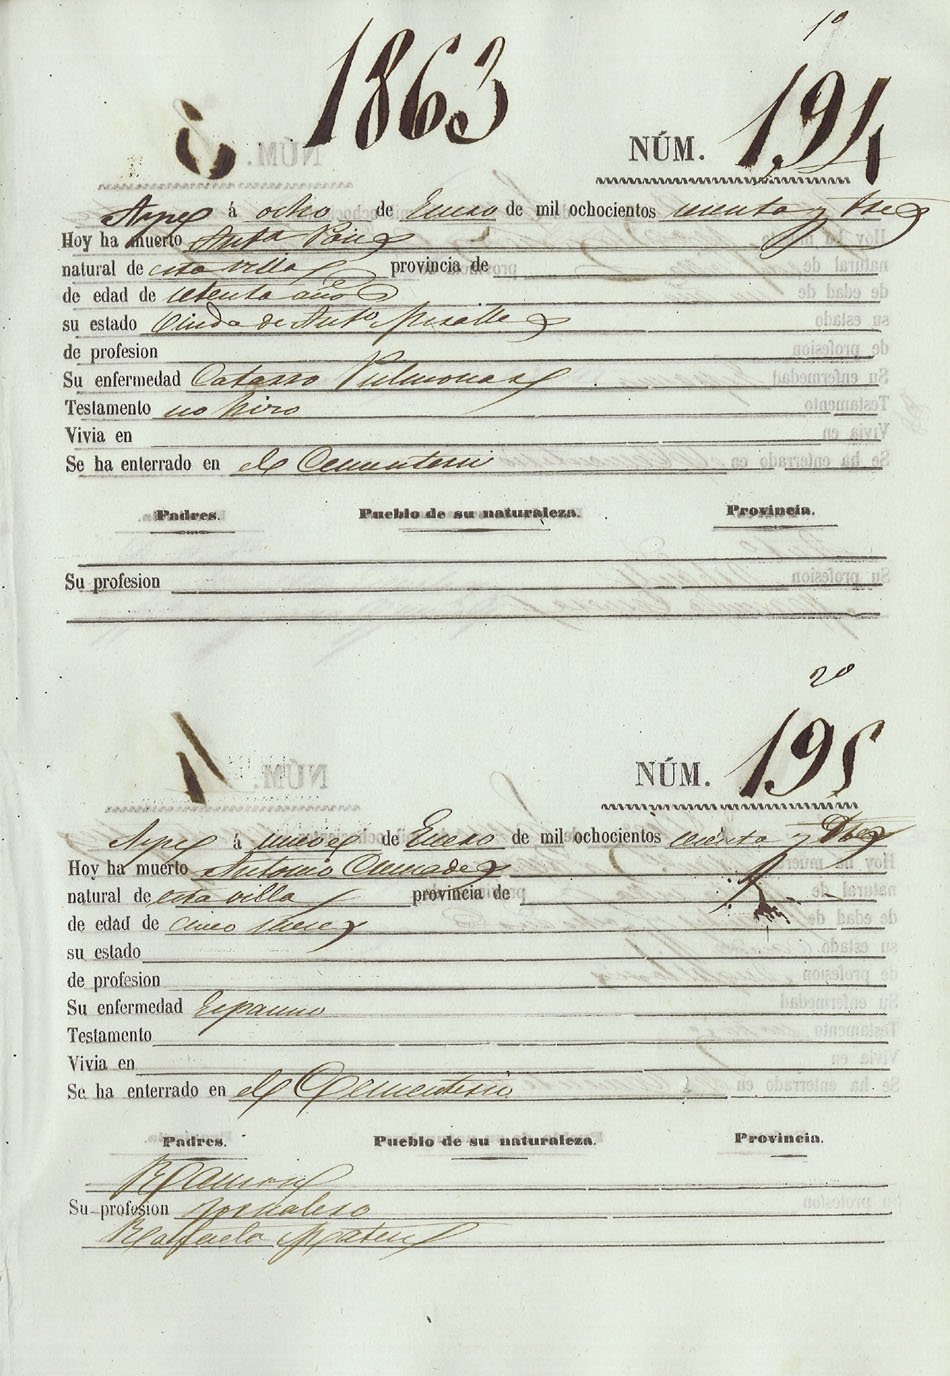 1º
1863
NÚM. 194
Aspe á ocho de Enero de mil ochocientos sesenta y tres
Hoy ha muerto
natural de esta villa provincia de
de edad de setenta años
su estado Viuda de Antº
de profesion
Su enfermedad Catarro Pulmonar
Testamento no hizo
Vivia en
Se ha enterrado en el Cementerio
Padres. Pueblo de su naturaleza. Provincia.
Su profesion
2º
NÚM. 195
Aspe á nueve de Enero de mil ochocientos sesenta y tres
Hoy ha muerto Antonio
natural de esta villa provincia de
de edad de cinco meses
su estado
de profesion
Su enfermedad Espasmo
Testamento
Vivia en
Se ha enterrado en el Cementerio
Padres. Pueblo de su naturaleza. Provincia.
Ramon
Su profesion Jornalero
Rafaela Mateu